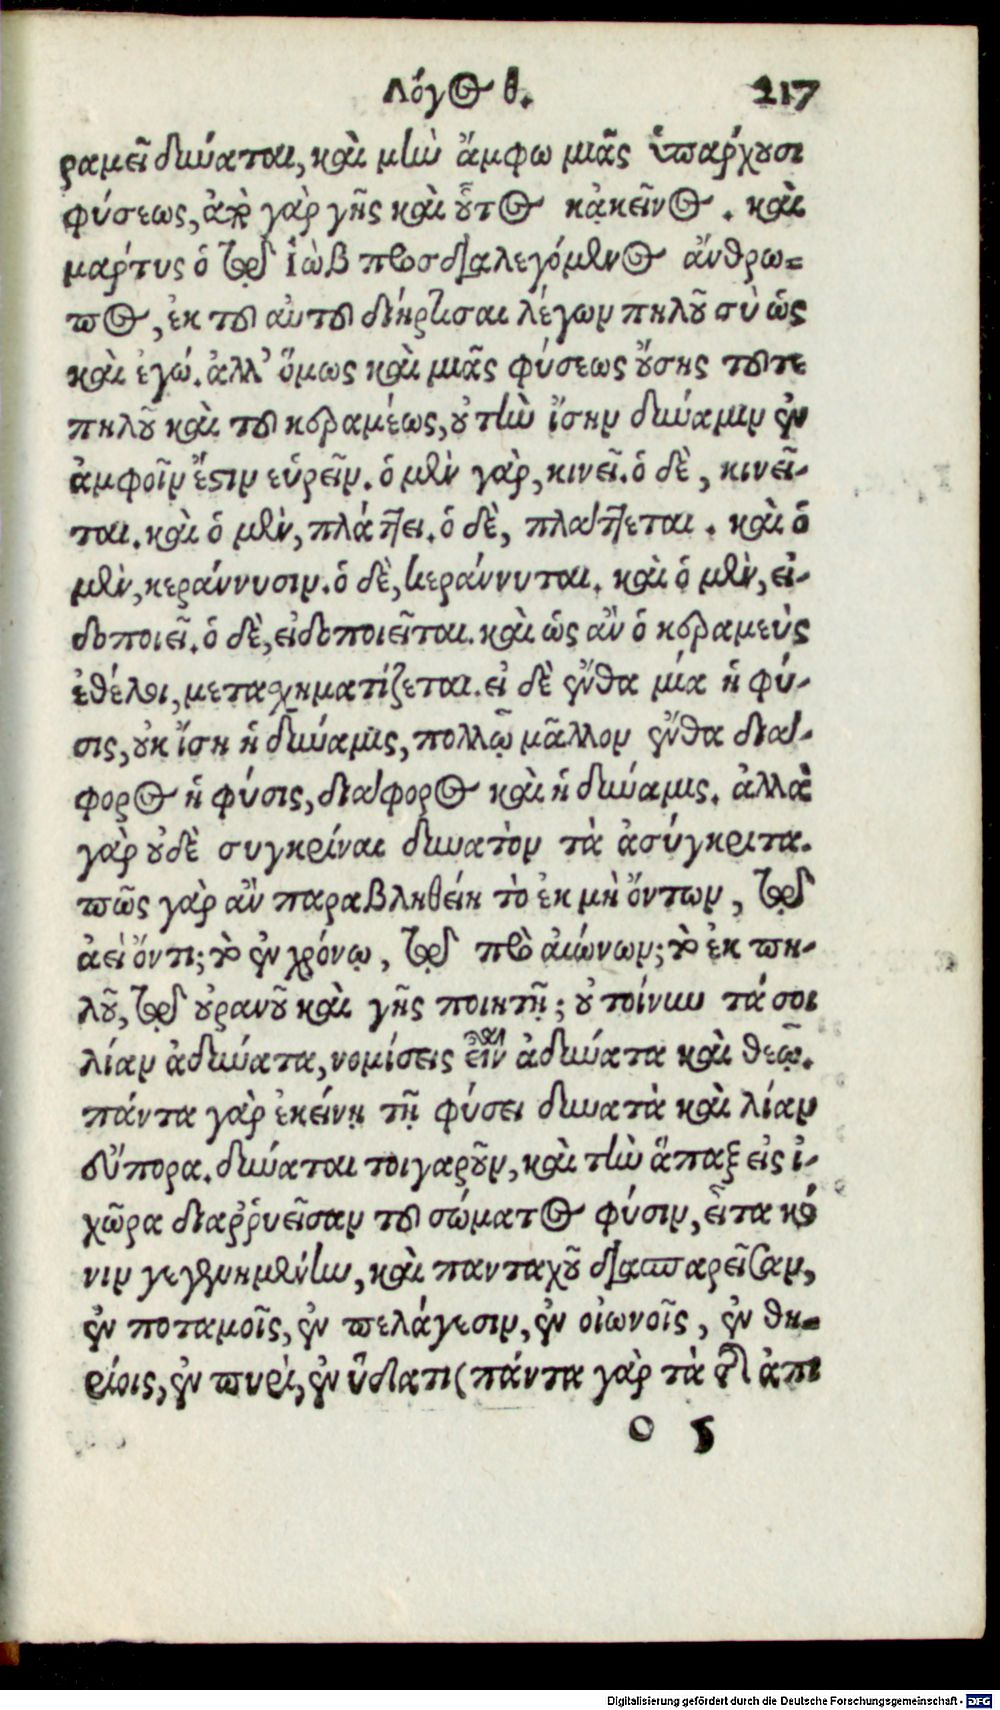 Λόγος θ. 217
ραμεῖ δύναται, καὶ μὴν ἄμφω μιᾶς ὑπάρχουσι
φύσεως, ἀπὸ γὰρ γῆς καὶ οὗτος κἀκεῖνος. καὶ
μάρτυς ὁ τῷ Ἰὼβ προσδιαλεγόμενος ἄνθρω=
πος, ἐκ τοῦ αὐτοῦ διήρτισαι λέγων πηλοῦ σὺ ὡς
καὶ ἐγώ. ἀλλ' ὅμως καὶ μιᾶς φύσεως οὔσης τοῦ τε
πηλοῦ καὶ τοῦ κεραμέως, οὐ τὴν ἴσην δύναμιν ἐν
ἀμφοῖν ἔστιν εὑρεῖν. ὁ μὲν γὰρ, κινεῖ. ὁ δὲ, κινεῖ-
ται. καὶ ὁ μὲν, πλάττει. ὁ δὲ, πλάττεται. καὶ ὁ
μὲν, κεράννυσιν. ὁ δὲ, κεράννυται. καὶ ὁ μὲν, εἰ-
δοποιεῖ. ὁ δὲ, εἰδοποιεῖται. καὶ ὡς ἂν ὁ κεραμεὺς
ἐθέλοι, μετασχηματίζεται. εἰ δὲ ἔνθα μία ἡ φύ-
σις, οὐκ ἴση ἡ δύναμις, πολλῷ μᾶλλον ἔνθα διά-
φορος ἡ φύσις, διάφορος καὶ ἡ δύναμις. ἀλλὰ
γὰρ οὐδὲ συγκρίναι δυνατὸν τὰ ἀσύγκριτα.
πῶς γὰρ ἂν παραβληθείη τὸ ἐκ μὴ ὄντων, τῷ
ἀεὶ ὄντι; τὸ ἐν χρόνῳ, τῷ πρὸ αἰώνων; τὸ ἐκ πη-
λοῦ, τῷ οὐρανοῦ καὶ γῆς ποιητῇ; οὐ τοίνυν τά σοι
λίαν ἀδύνατα, νομίσεις εἶναι ἀδύνατα καὶ θεῷ.
πάντα γὰρ ἐκείνῃ τῇ φύσει δυνατὰ καὶ λίαν
εὔπορα. δύναται τοιγαροῦν, καὶ τὴν ἅπαξ εἰς ἰ-
χῶρα διαῤῥυεῖσαν τοῦ σώματος φύσιν, εἶτα κό
νιν γεγενημένην, καὶ πανταχοῦ διασπαρεῖσαν,
ἐν ποταμοῖς, ἐν πελάγεσιν, ἐν οἰωνοῖς, ἐν θη=
ρίοις, ἐν πυρὶ, ἐν ὕδατι (πάντα γὰρ τὰ τῆς ἀπι
o 5
Digitalisierung gefördert durch die Deutsche Forschungsgemeinschaft - DFG